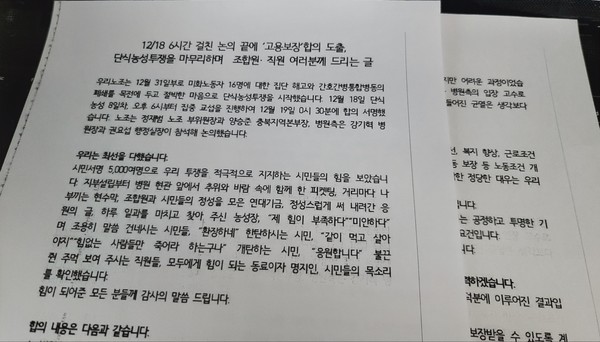 12/18 6시간 걸친 논의 끝에 '고용보장'합의 도출,
단식농성투쟁을 마무리하며 조합원·직원 여러분께 드리는 글
우리노조는 12월 31일부로 미화노동자 16명에 대한 집단 해고와 간호간병통합병동의
폐쇄를 목전에 두고 절박한 마음으로 단식농성투쟁을 시작했습니다. 12월 18일 단식
농성 8일차, 오후 6시부터 집중 교섭을 진행하여 12월 19일 0시 30분에 합의 서명했
습니다. 노조는 정재범 노조 부위원장과 양승준 충북지역본부장, 병원측은 강기혁 병
원장과 권요섭 행정실장이 참석해 논의했습니다.
우리는 최선을 다했습니다.
시민서명 5,000여명으로 우리 투쟁을 적극적으로 지지하는 시민들의 힘을 보았습니
다. 지부설립부터 병원 현관 앞에서 추위와 바람 속에 함께 한 피켓팅, 거리마다 나
부끼는 현수막, 조합원과 시민들의 정성을 모은 연대기금, 정성스럽게 써 내려간 응
원의 글, 하루 일과를 마치고 찾아 주신 농성장, "제 힘이 부족하다""미안하다"
며 조용히 말씀 건네시는 시민들, "환장하네" 한탄하시는 시민, "같이 먹고 살아
야지""힘없는 사람들만 죽어라 하는구나" 개탄하는 시민, "응원합니다" 불끈
쥔 주먹 보여 주시는 직원들, 모두에게 힘이 되는 동료이자 명지인, 시민들의 목소리
를 확인했습니다.
힘이 되어준 모든 분들께 감사의 말씀 드립니다.
합의 내용은 다음과 같습니다.
지만 어려운 과정이었습
병원측의 입장 고수로
들어진 균열은 생각보다
선, 복지 향상, 근로조건
용 보장 등 노동조건 개
한 정당한 대우는 우리
는 공정하고 투명한 기
요건입니다.
력하겠습니다.
덕분에 이루어진 결과입
보장받을 수 있도록 계